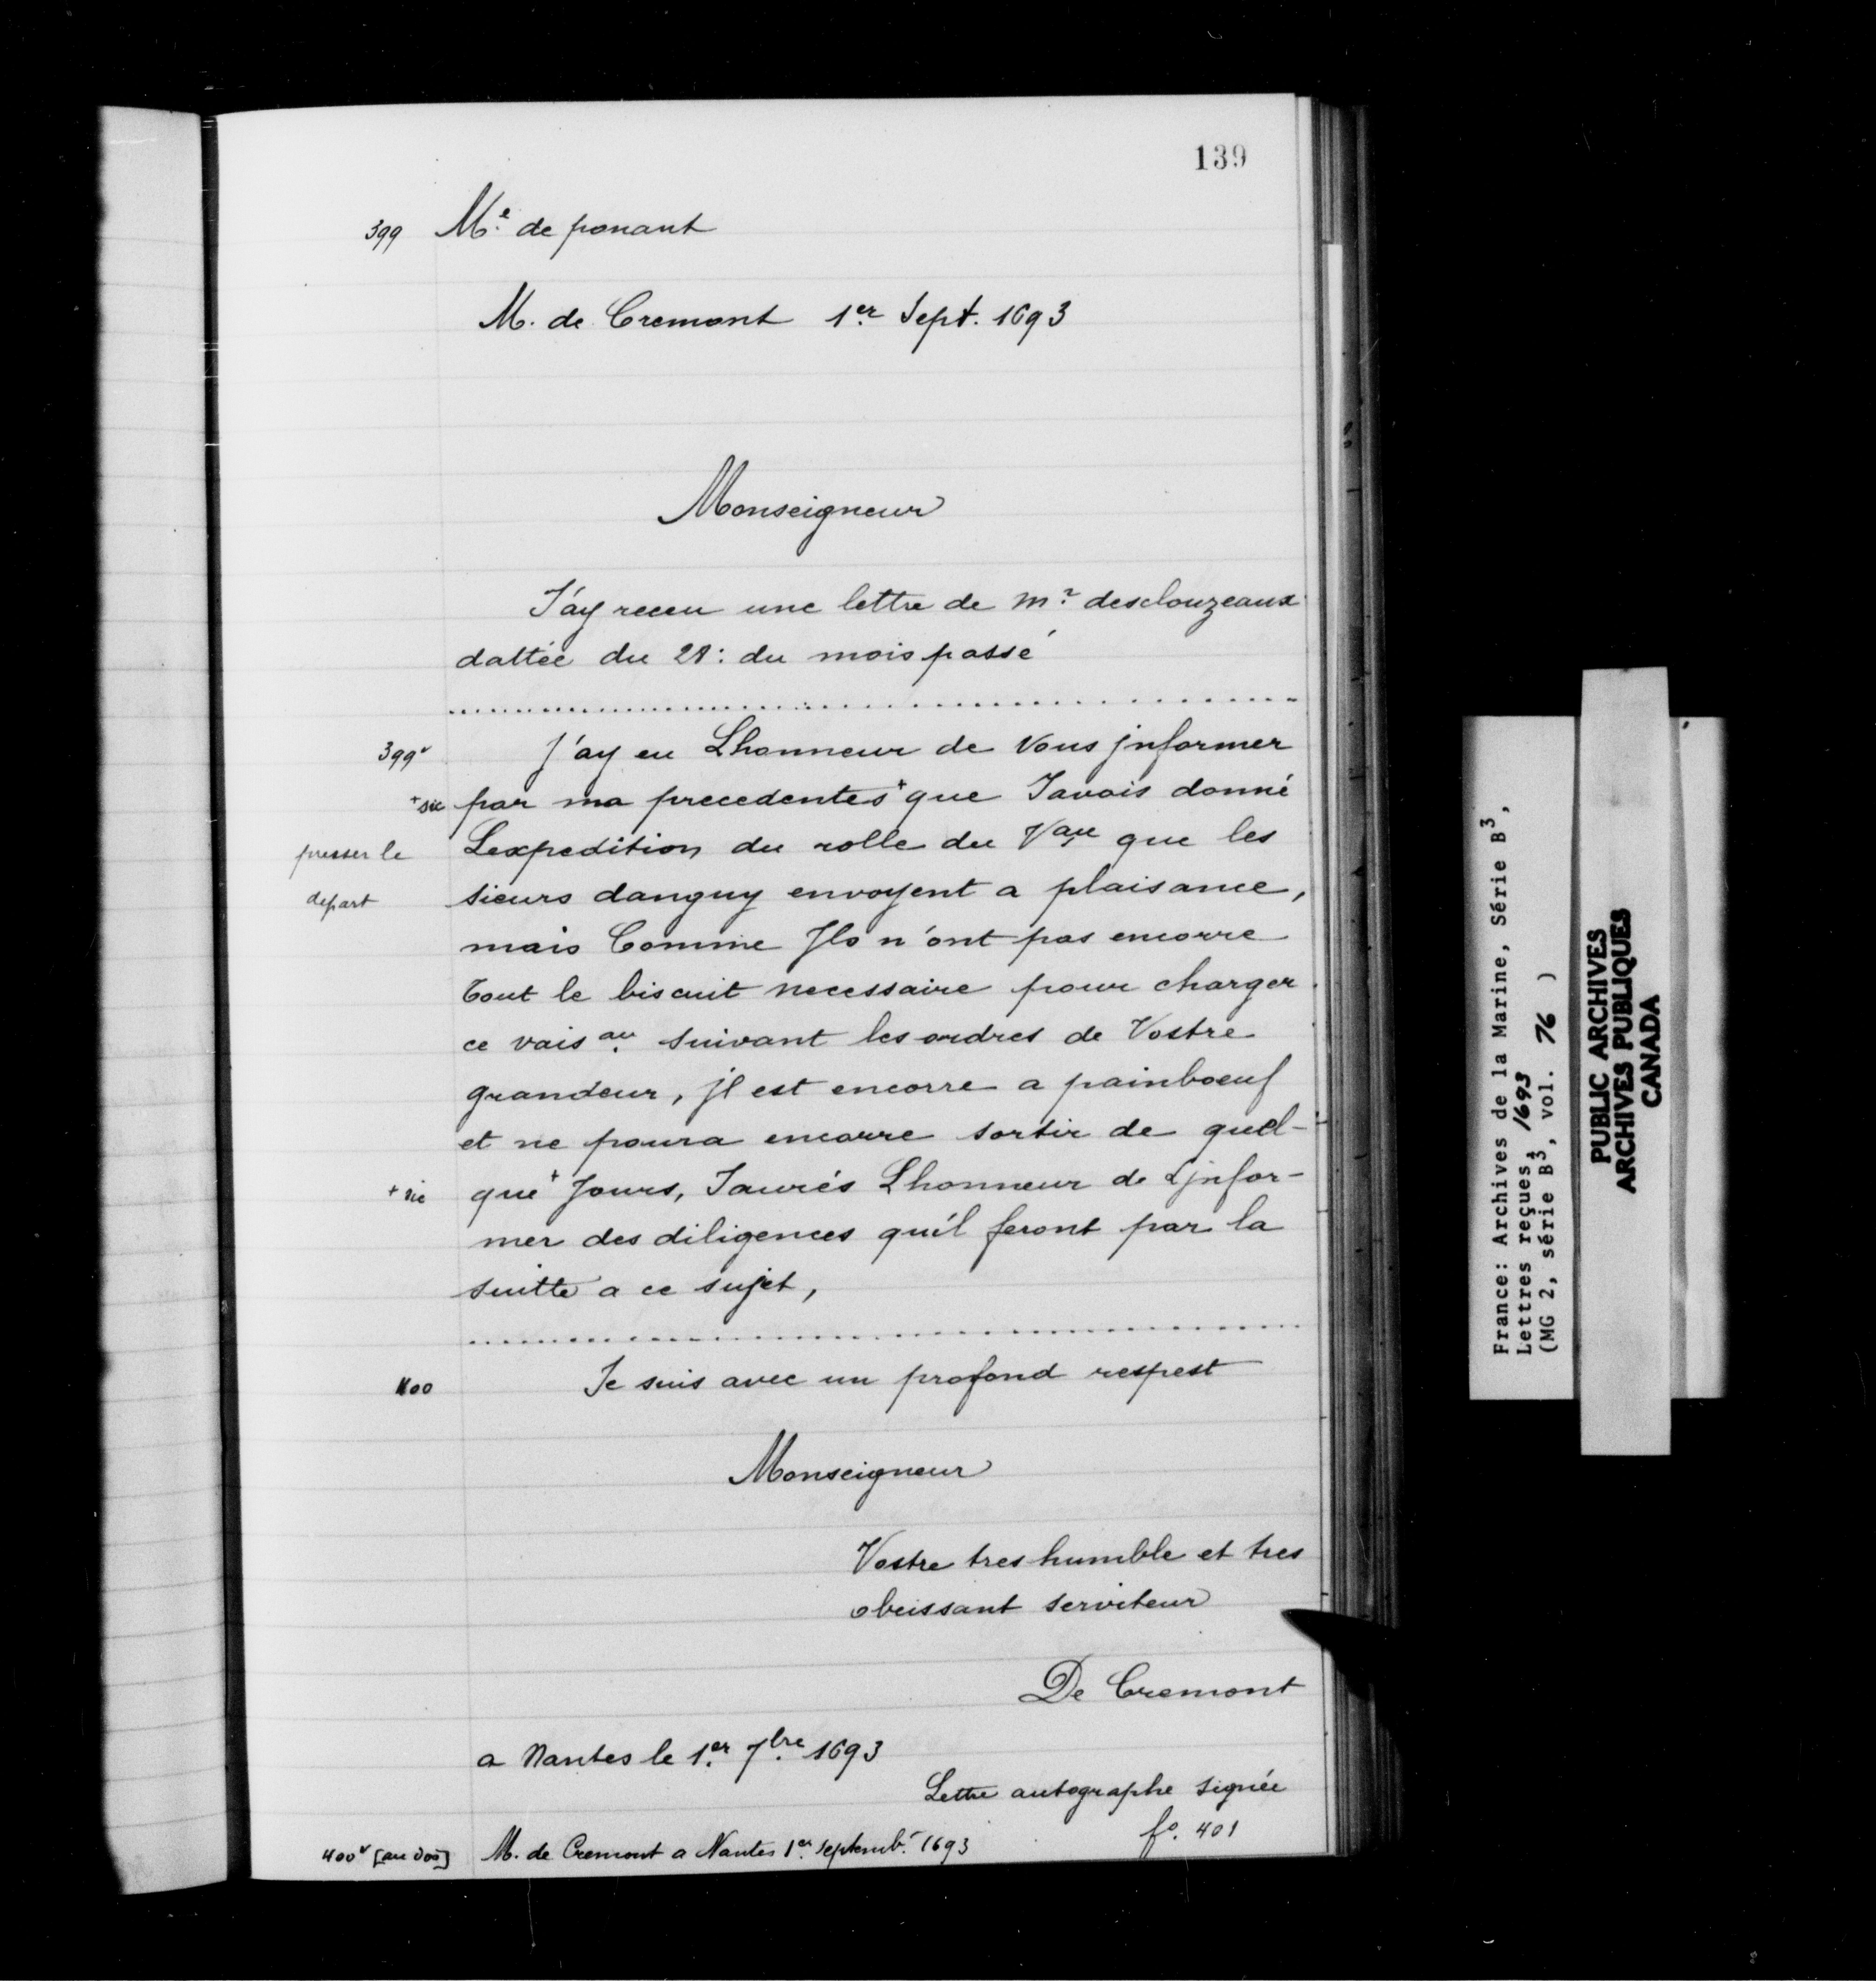 139
399 M.e de ponant
M. de Cremont 1.er Sept. 1693
Monseigneur
J'ay receu une lettre de m.r desclouzeaux
dattée du 28: du mois passé
399v J'ay eu Lhonneur de vous jnformer
+sic par ma precedentes+ que Javois donné
presser le Lexpedition du rolle du V.au que les
depart sieurs danguy envoyent a plaisance,
mais Comme Jls n'ont pas encorre
Tout le biscuit necessaire pour charger
ce vais.au suivant les ordres de Vostre
grandeur, jl est encorre a painboeuf
et ne poura encorre sortir de quel-
+sic que+ Jours, Jaurés Lhonneur de Ljnfor-
mer des diligences qu'il feront par la
suitte a ce sujet,
400 Je suis avec un profond respest
Monseigneur
Vostre tres humble et tres
obeissant serviteur
De Cremont
a Nantes le 1.er 7.bre 1693
Lettre autographe signée
fo. 401
400v [au dos] M. de Cremont a Nantes 1.er septemb.r 1693
France: Archives de la Marine, Série B3,
Lettres reçues, 1693
(MG 2, série B3, vol. 76 )
PUBLIC ARCHIVES
ARCHIVES PUBLIQUES
CANADA